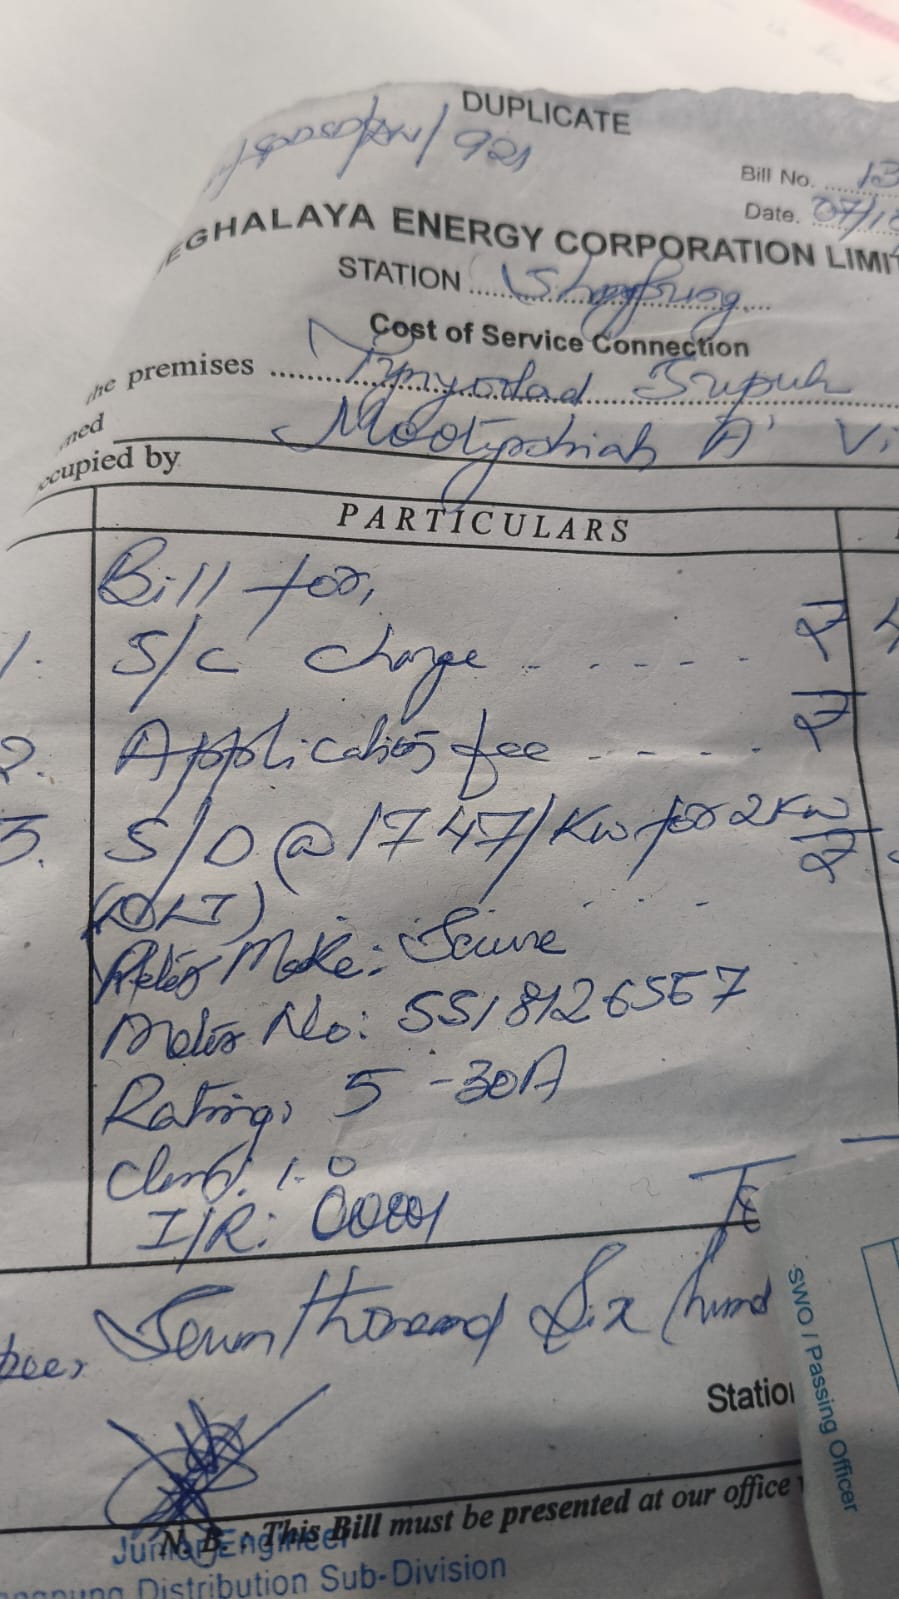 DUPLICATE
921
Bill No. 13
Date. 07/1
EGHALAYA ENERGY CORPORATION LIMIT
STATION
Cost of Service Connection
the premises
Mootyrshiah 'A' Vi
ned
ccupied by
PARTICULARS
Bill for,
1. S/C Charge ..... ₹ 4
2. Application fee ..... ₹
3. S/D @ 1747/Kw for 2Kw ₹
(DLT)
Meter Make: Secure
Meter No: SS18126567
Rating: 5-30A
Class: 1.0
I/R: 00001
Seven thousand Six hund
Statio
SWO / Passing Officer
N. B. : This Bill must be presented at our office
Junior Engineer
Distribution Sub-Division